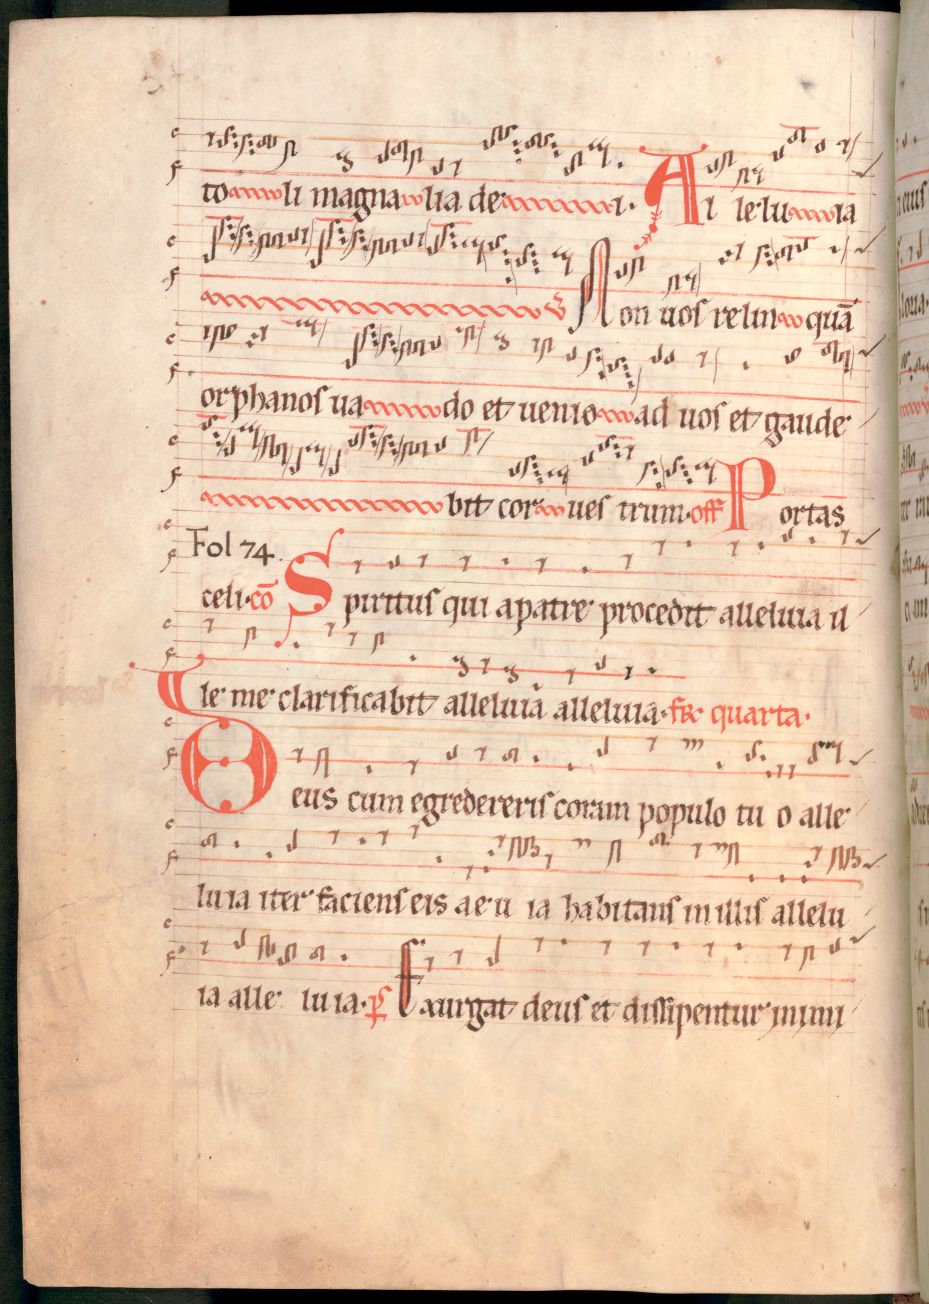 to li magna lia de i. Al lelu ia
V Non uos relin quā
orphanos ua do et uenio ad uos et gaude
bit cor ues trum. off Portas
Fol 74
celi. cō Spiritus qui a patre procedit alleluia il
le me clarificabit alleluia alleluia. fr quarta.
Deus cum egredereris coram populo tu o alle
luia iter faciens eis a e u ia habitans in illis allelu
ia alle lu ia. ps Exurgat deus et dissipentur inimi